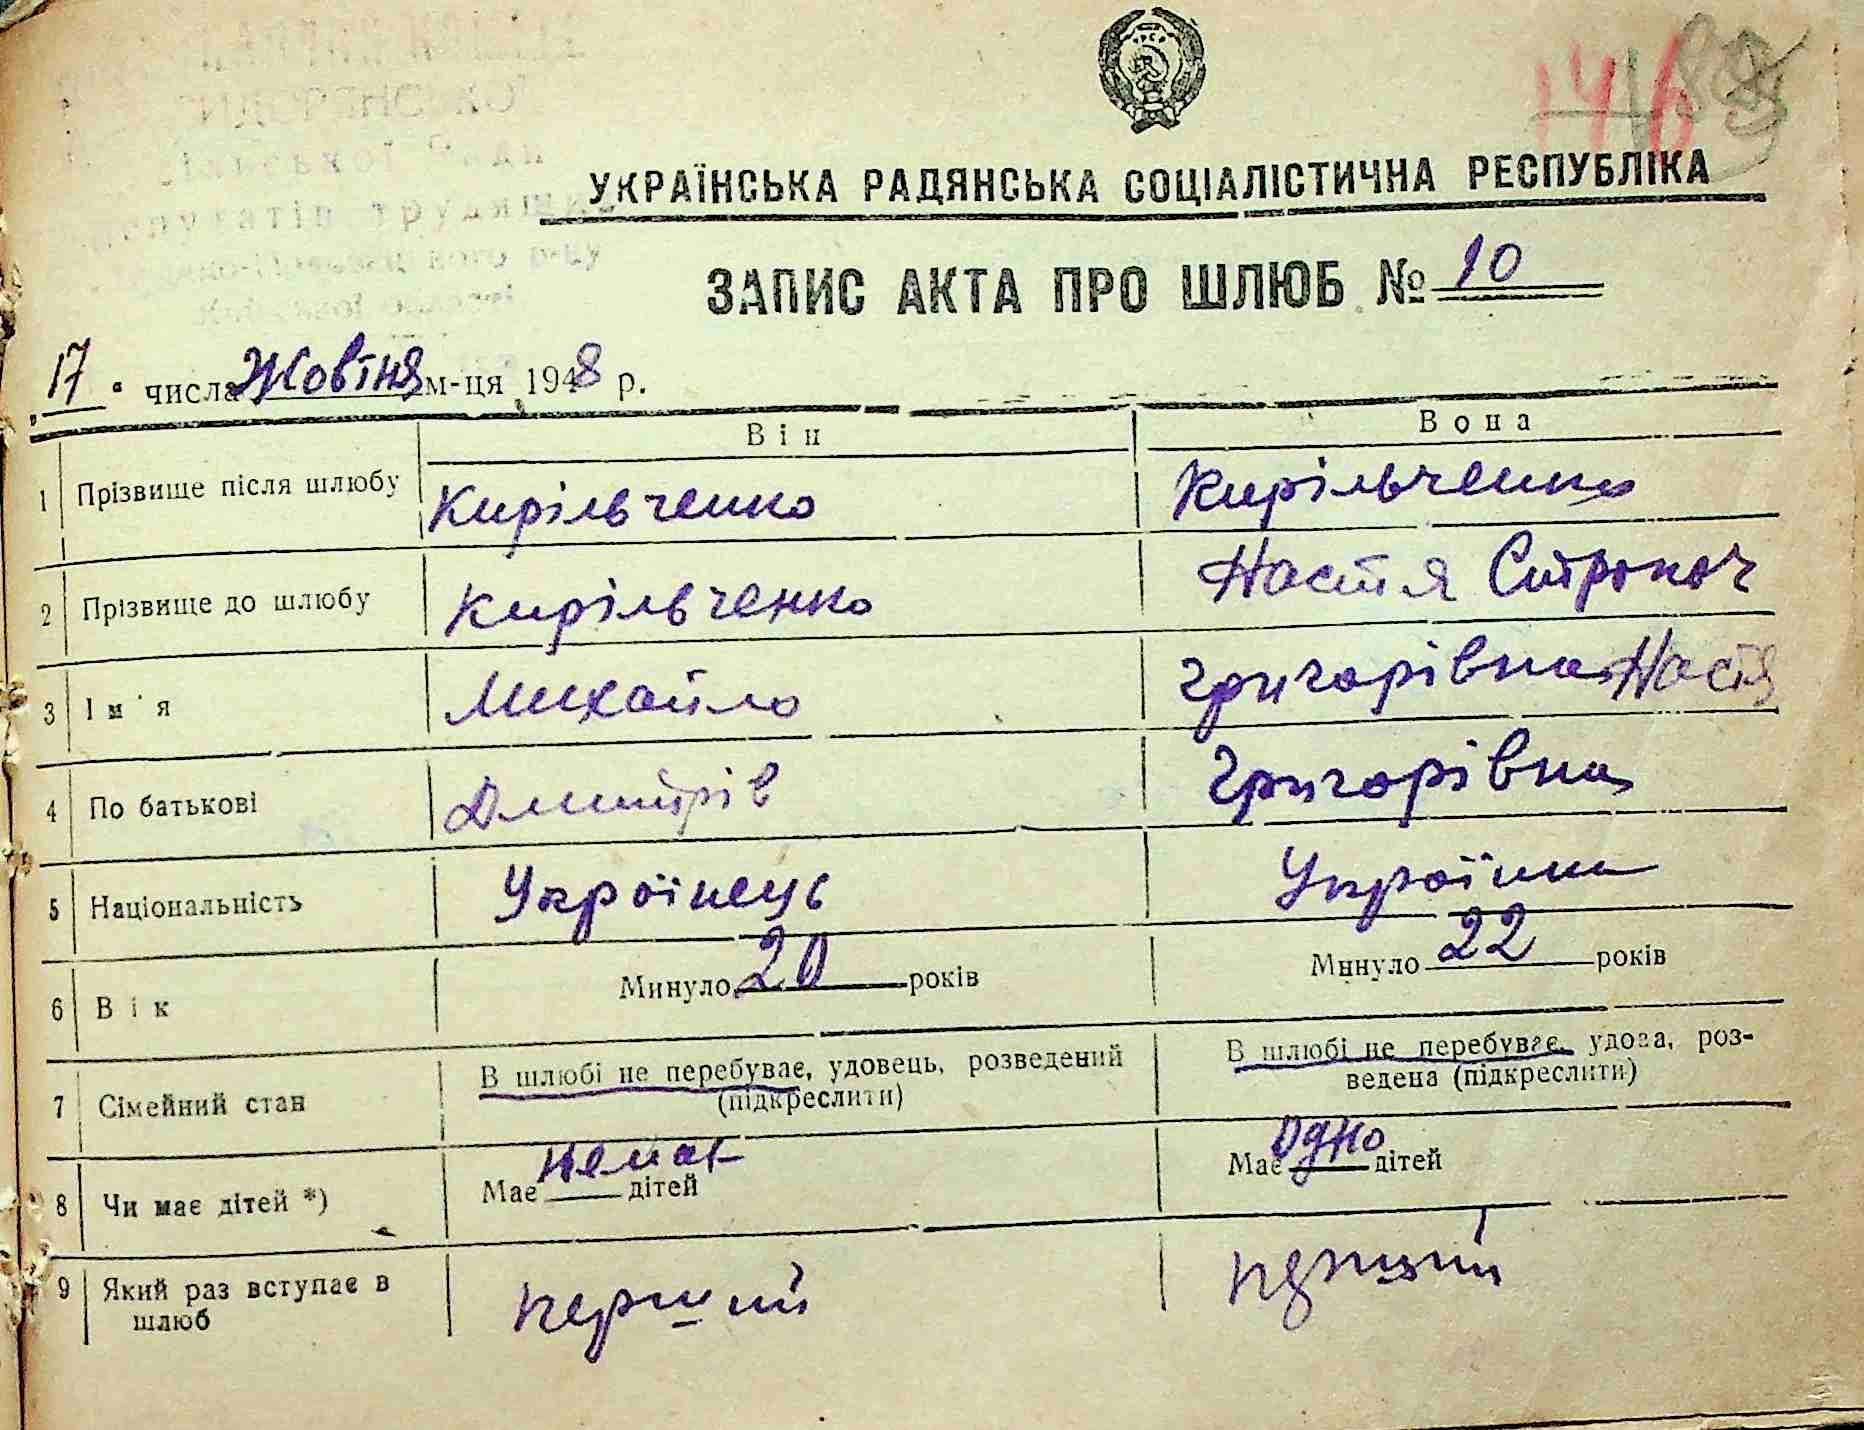 146
УКРАЇНСЬКА РАДЯНСЬКА СОЦІАЛІСТИЧНА РЕСПУБЛІКА
ЗАПИС АКТА ПРО ШЛЮБ № 10
„17“ числа Жовтня м-ця 1948 р.
Він Вона
1 Прізвище після шлюбу Кирільченко Кирільченко
2 Прізвище до шлюбу Кирільченко Настя Строкач
3 Ім'я Михайло Григорівна Настя
4 По батькові Дмитрів Григорівна
5 Національність Українець Українка
6 Вік Минуло 20 років Минуло 22 років
7 Сімейний стан В шлюбі не перебуває, удовець, розведений (підкреслити) В шлюбі не перебуває, удова, роз-
ведена (підкреслити)
8 Чи має дітей *) Має немає дітей Має одно дітей
9 Який раз вступає в шлюб перший перший